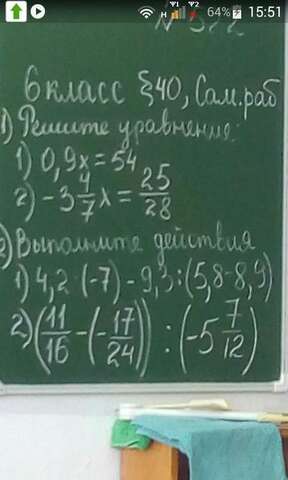 64% 15:51
6 класс §40, Сам.раб
1) Решите уравнение:
1) 0,9x = 54
2) -3 4/7 x = 25/28
2) Выполните действия
1) 4,2·(-7) - 9,3:(5,8-8,9)
2) (11/16 - (-17/24)) : (-5 7/12)